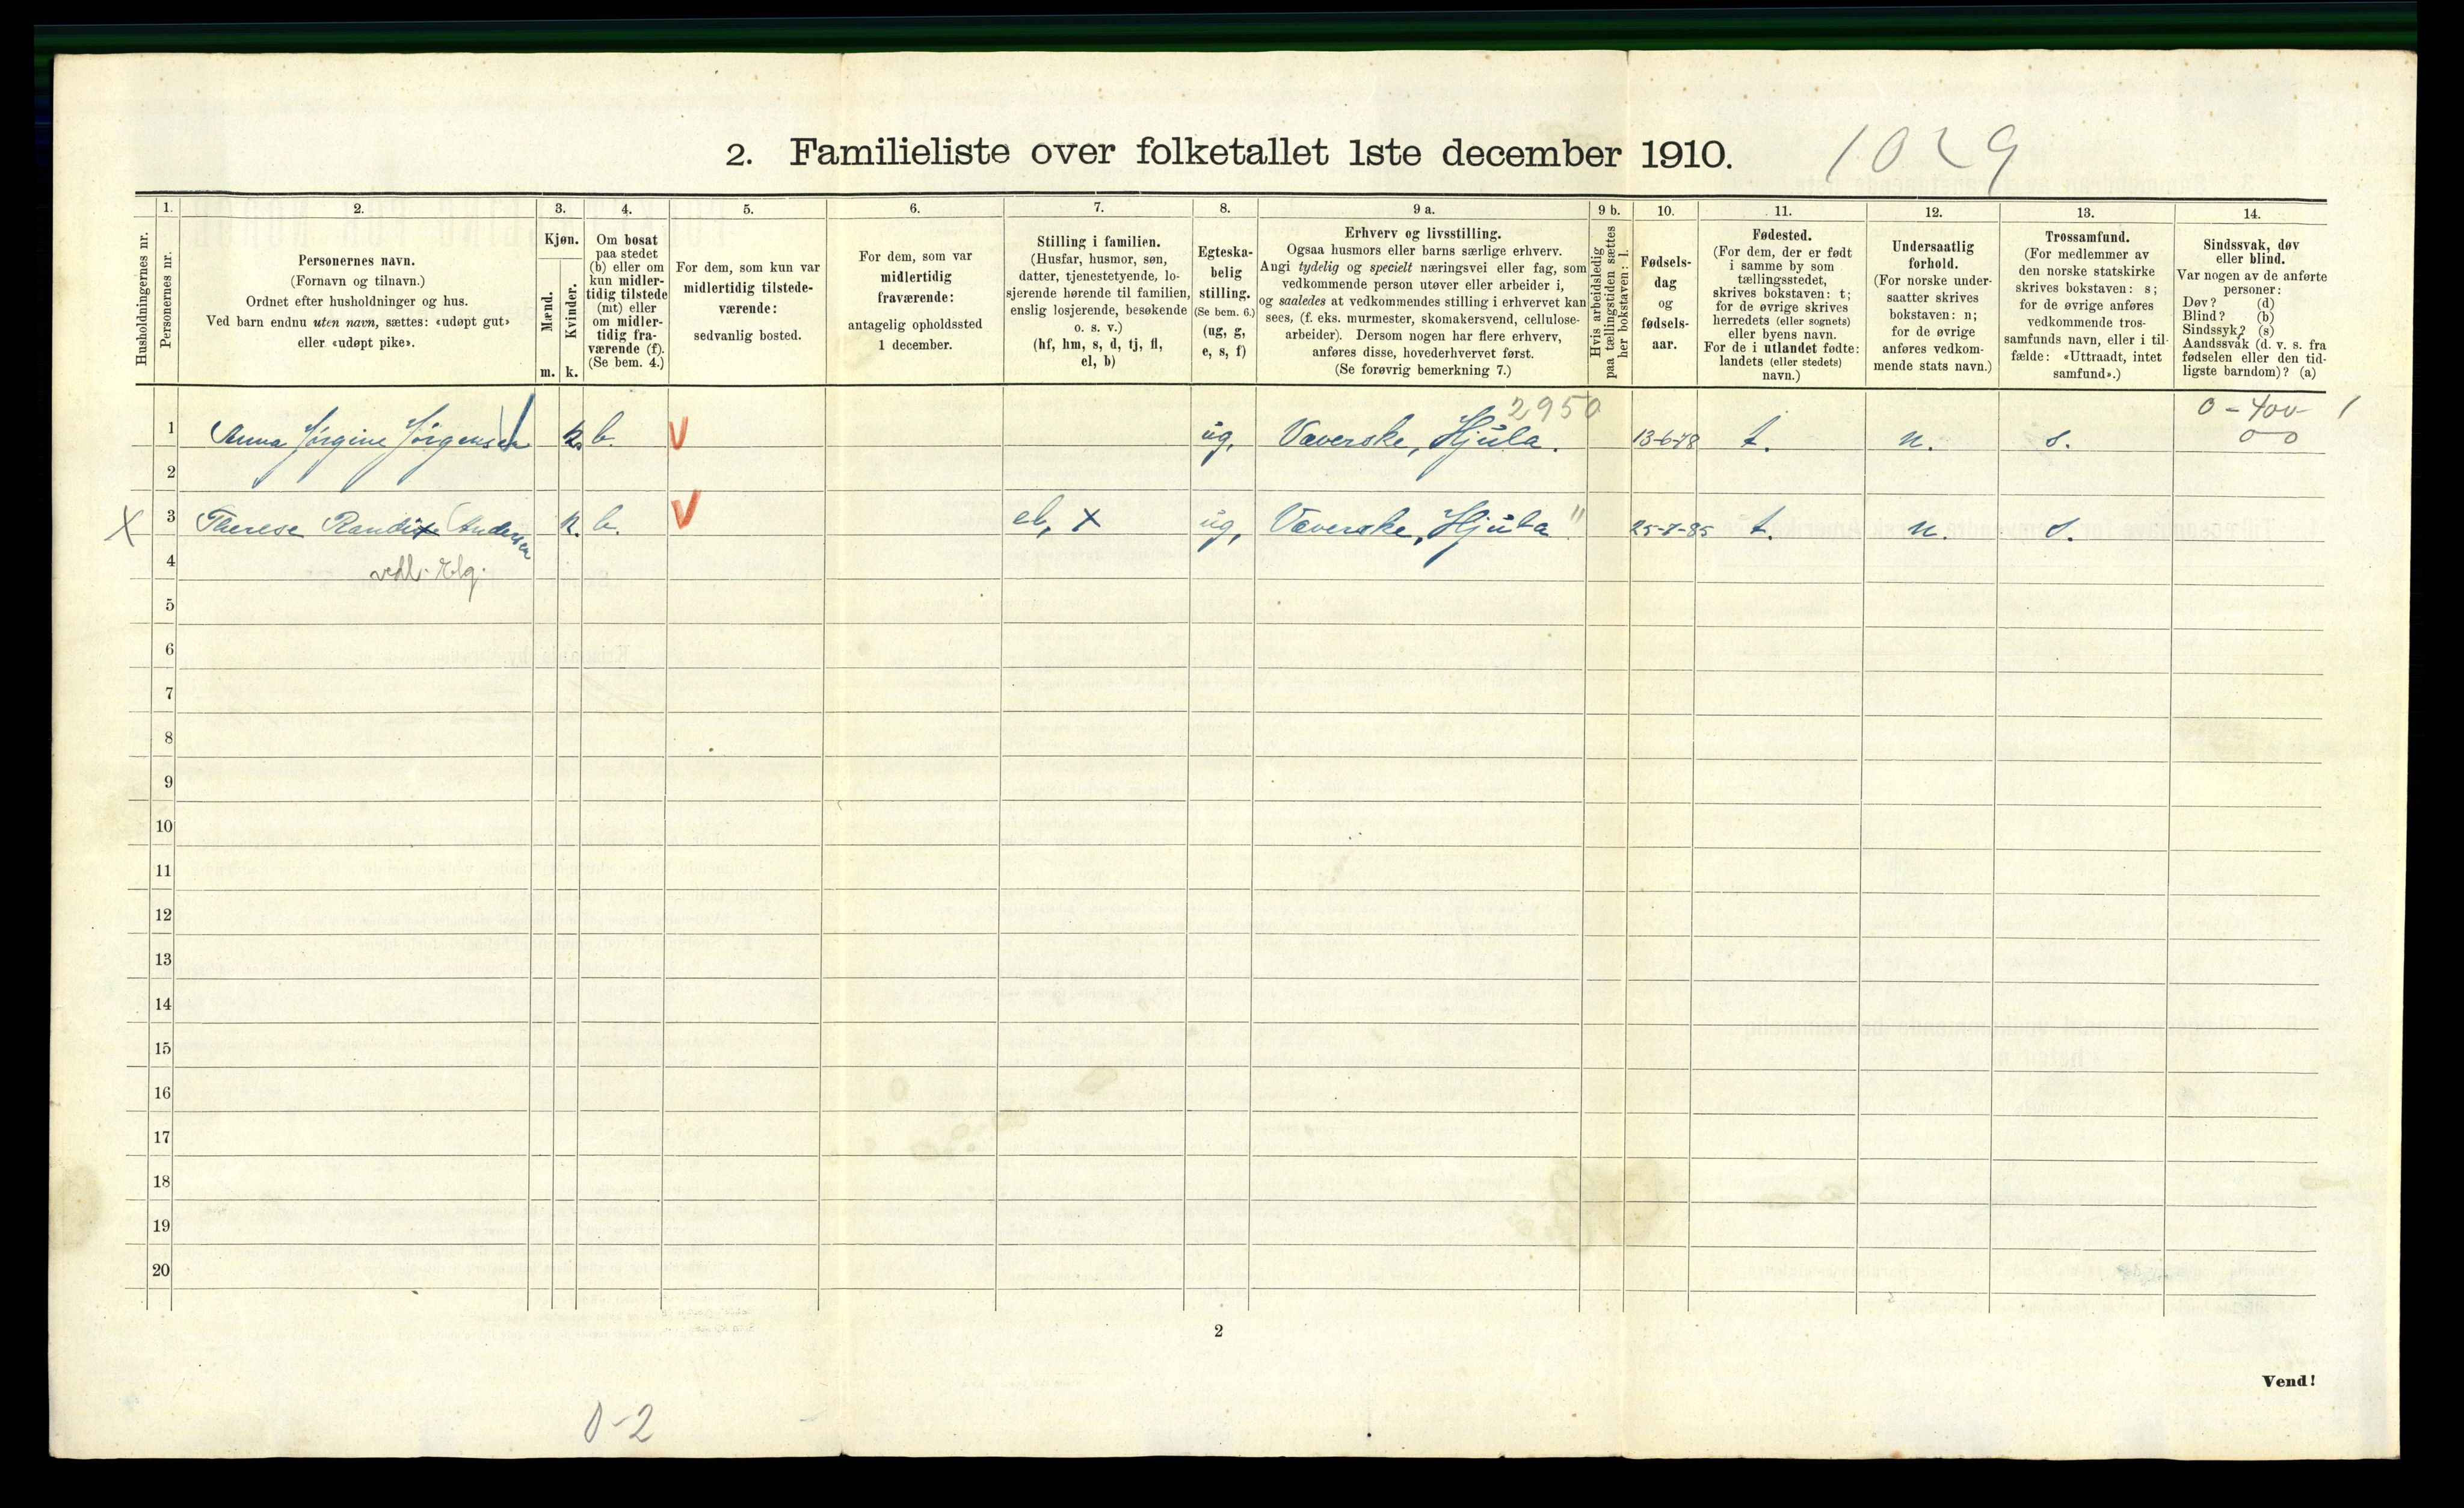 2. Familieliste over folketallet 1ste december 1910.
1029
Husholdningernes nr.
1.
Personernes nr.
2.
Personernes navn.
(Fornavn og tilnavn.)
Ordnet efter husholdninger og hus.
Ved barn endnu uten navn, sættes: «udøpt gut»
eller «udøpt pike».
3.
Kjøn.
Mænd.
Kvinder.
m.
k.
4.
Om bosat
paa stedet
(b) eller om
kun midler-
tidig tilstede
(mt) eller
om midler-
tidig fra-
værende (f).
(Se bem. 4.)
5.
For dem, som kun var
midlertidig tilstede-
værende:
sedvanlig bosted.
6.
For dem, som var
midlertidig
fraværende:
antagelig opholdssted
1 december.
7.
Stilling i familien.
(Husfar, husmor, søn,
datter, tjenestetyende, lo-
sjerende hørende til familien,
enslig losjerende, besøkende
o. s. v.)
(hf, hm, s, d, tj, fl,
el, b)
8.
Egteska-
belig
stilling.
(Se bem. 6.)
(ug, g,
e, s, f)
9 a.
Erhverv og livsstilling.
Ogsaa husmors eller barns særlige erhverv.
Angi tydelig og specielt næringsvei eller fag, som
vedkommende person utøver eller arbeider i,
og saaledes at vedkommendes stilling i erhvervet kan
sees, (f. eks. murmester, skomakersvend, cellulose-
arbeider). Dersom nogen har flere erhverv,
anføres disse, hovederhvervet først.
(Se forøvrig bemerkning 7.)
9 b.
Hvis arbeidsledig
paa tællingstiden sættes
her bokstaven: l.
10.
Fødsels-
dag
og
fødsels-
aar.
11.
Fødested.
(For dem, der er født
i samme by som
tællingsstedet,
skrives bokstaven: t;
for de øvrige skrives
herredets (eller sognets)
eller byens navn.
For de i utlandet fødte:
landets (eller stedets)
navn.)
12.
Undersaatlig
forhold.
(For norske under-
saatter skrives
bokstaven: n;
for de øvrige
anføres vedkom-
mende stats navn.)
13.
Trossamfund.
(For medlemmer av
den norske statskirke
skrives bokstaven: s;
for de øvrige anføres
vedkommende tros-
samfunds navn, eller i til-
fælde: «Uttraadt, intet
samfund».)
14.
Sindssvak, døv
eller blind.
Var nogen av de anførte
personer:
Døv? (d)
Blind? (b)
Sindssyk? (s)
Aandssvak (d. v. s. fra
fødselen eller den tid-
ligste barndom)? (a)
2950
0-400- 1
1 Anna Jørgine Jørgensen k. b. V ug, Væverske, Hjula. 13-6-78 t. n. s. 0-0
2
X 3 Therese Randi Andersen k. b. V el, x ug, Væverske, Hjula " 25-7-85 t. n. s.
4
5
6
7
8
9
10
11
12
13
14
15
16
17
18
19
20
2
Vend!
0-2